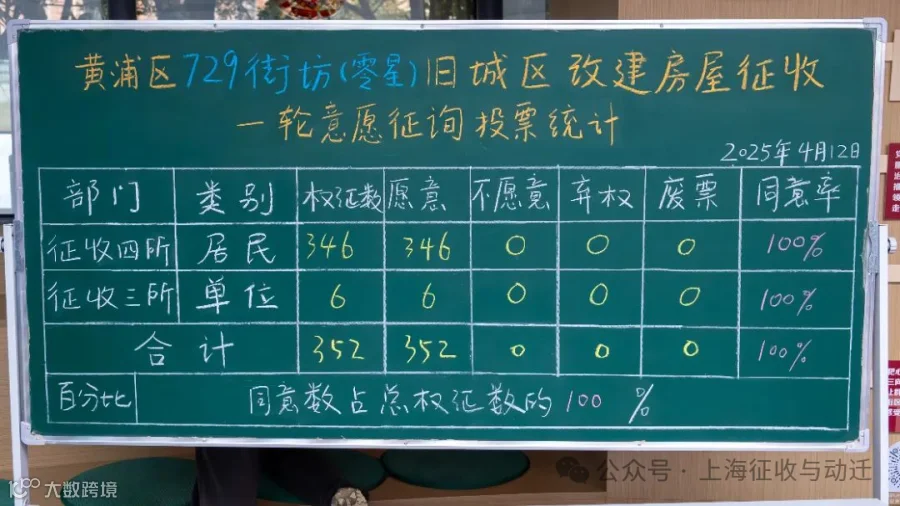 黄浦区729街坊(零星)旧城区改建房屋征收
一轮意愿征询投票统计
2025年4月12日
部门 类别 权证数 愿意 不愿意 弃权 废票 同意率
征收四所 居民 346 346 0 0 0 100%
征收三所 单位 6 6 0 0 0 100%
合计 352 352 0 0 0 100%
百分比 同意数占总权证数的100%
公众号·上海征收与动迁
大数跨境